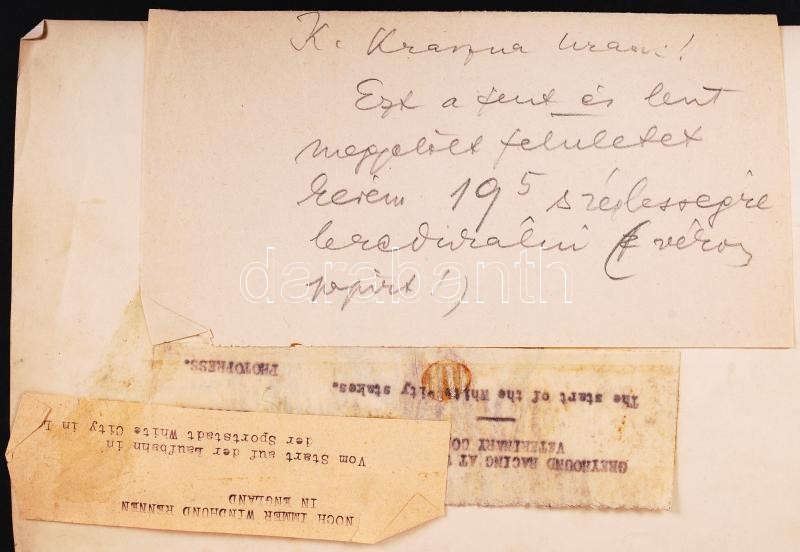 K. Kraszna Uram!
Ezt a fent és lent
megjelölt felületet
kérem 19⁵ szélességre
leredukálni (
papirt!)
darabanth
PHOTOPRESS.
The start of the White City stakes.
GREYHOUND RACING AT
VETERINARY CO
Vom Start auf der Laufbahn in
der Sportstadt White City in L
NOCH IMMER WINDHUND RENNEN
IN ENGLAND